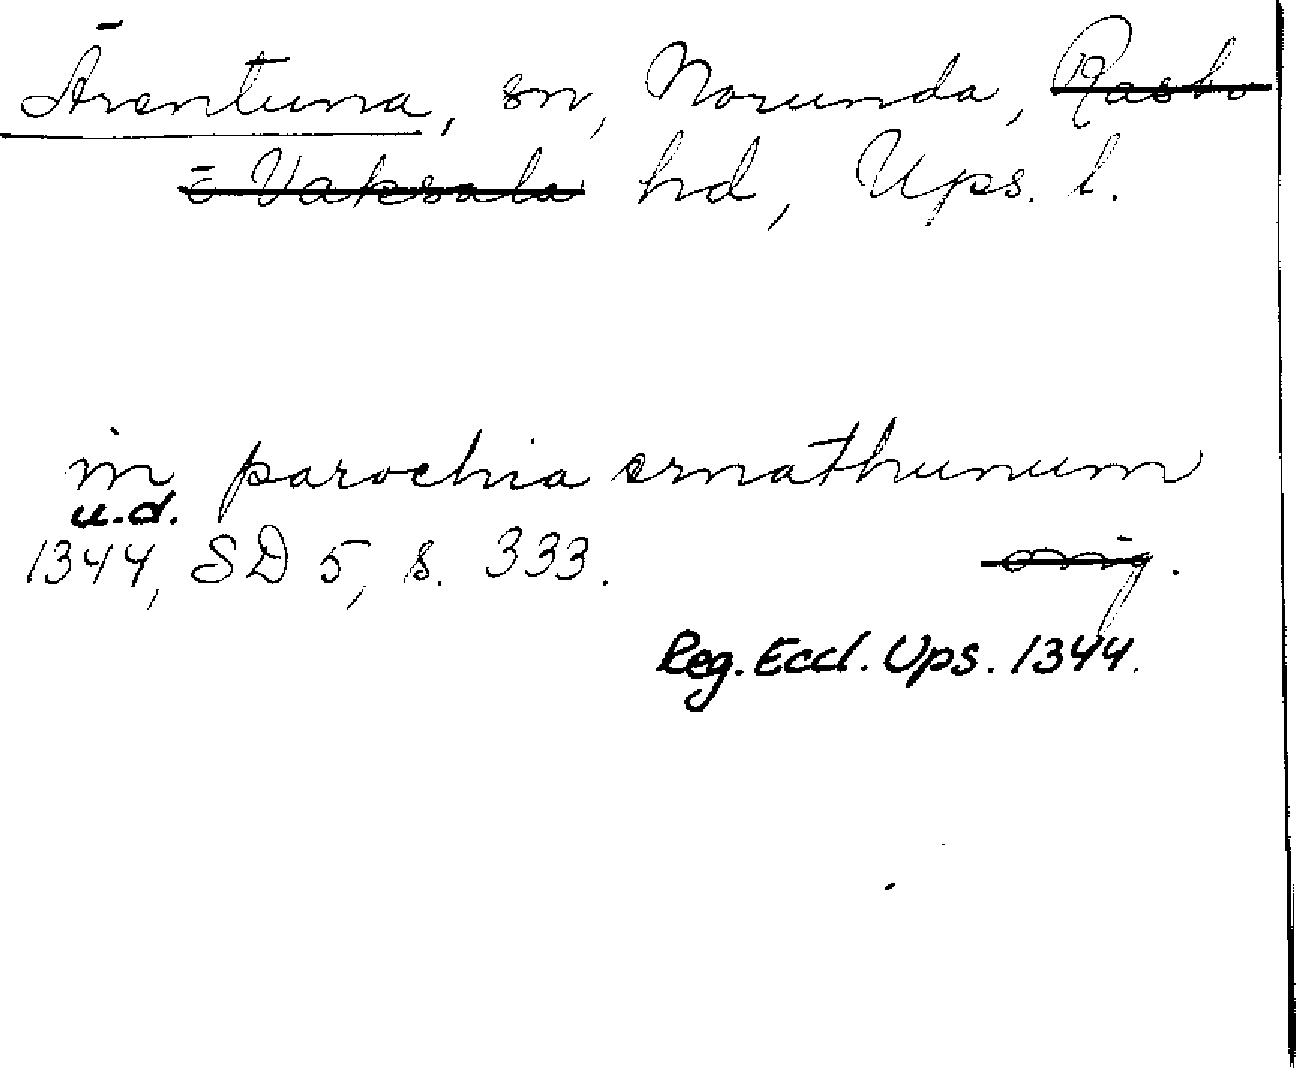 Ärentuna, sn, Norunda, Rasbo
o Vaksala hd, Ups. l.
in parochia ernathunum
u.d.
1344, SD 5, s. 333. orig.
Reg. Eccl. Ups. 1344.